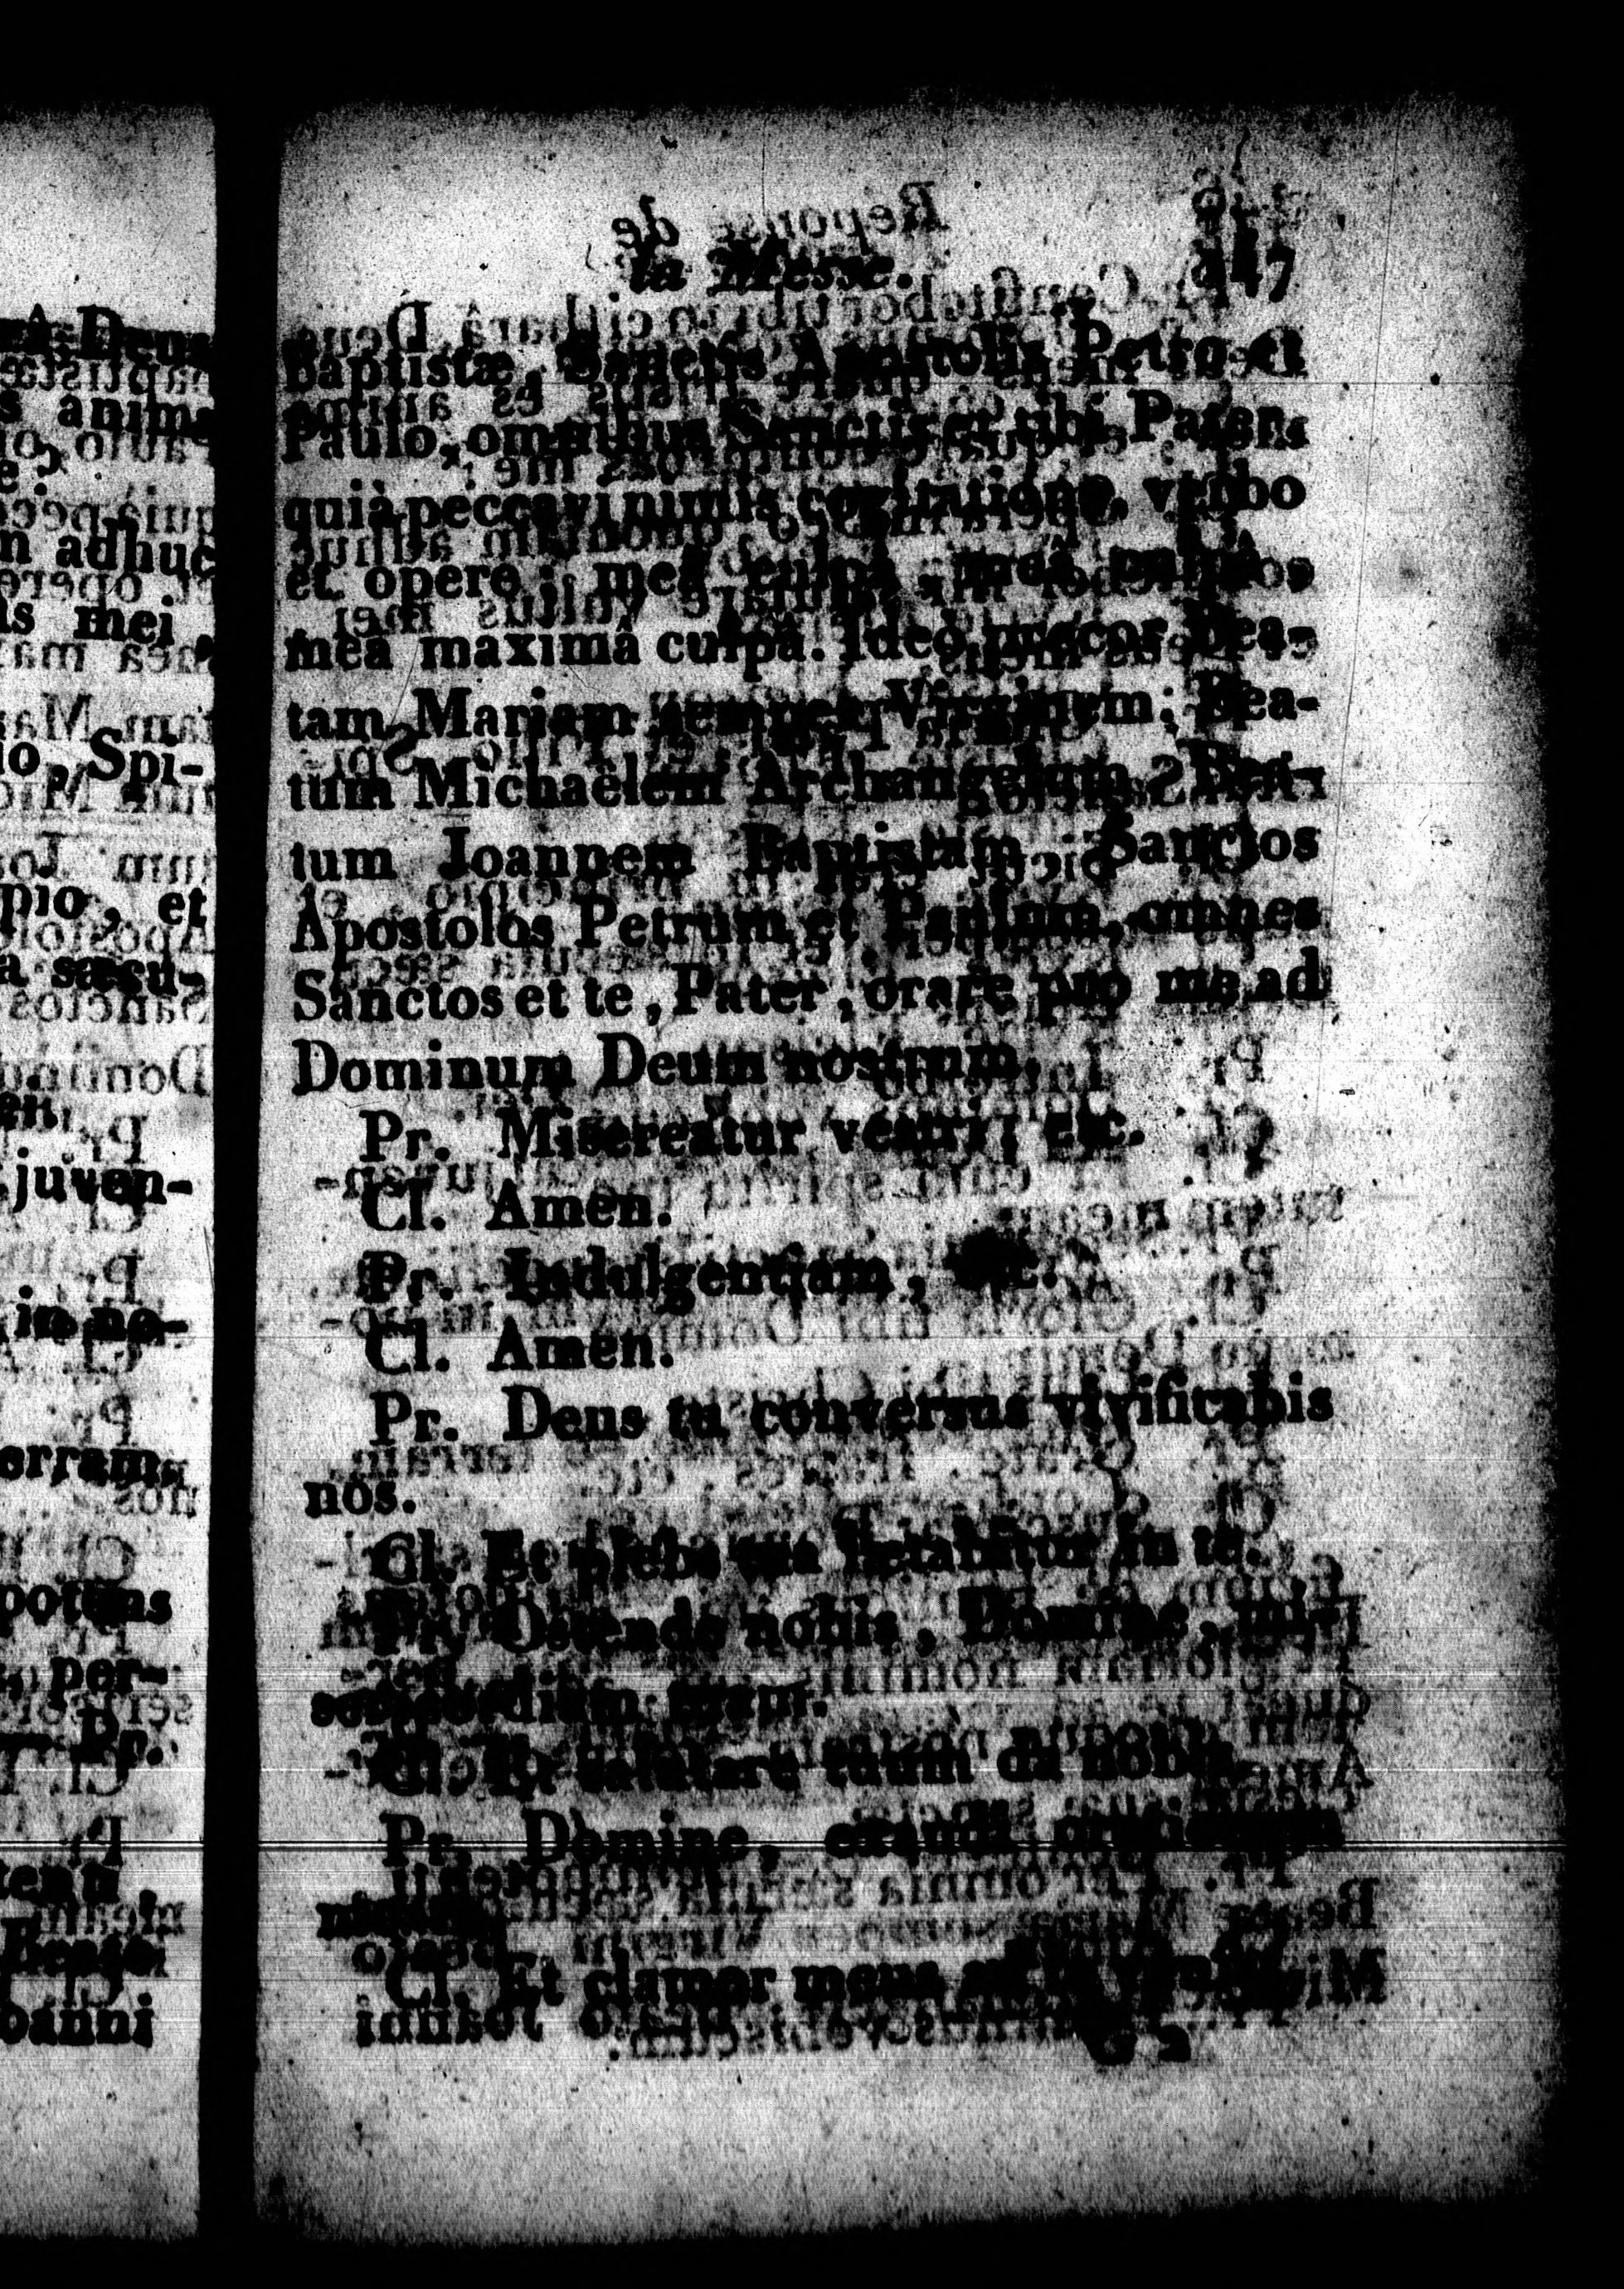 A Deus
s anima
e
n adhuc
is mei,
io, Spi-
pio, et
a sæcu-
en
juven-
in no-
erram
potens
per-
Pr.
team
Beato
oanni
la Messe. 247
Baptistæ, Sanctis Apostolis Petro et
Paulo, omnibus Sanctis et tibi, Pater,
quià peccavi nimis cogitatione, verbo
et opere; meâ culpâ, meâ culpâ
meâ maximâ culpâ. Ideò precor Bea-
tam Mariam semper Virginem; Bea-
tum Michaëlem Archangelum, Bea-
tum Joannem Baptistam, Sanctos
Apostolos Petrum et Paulum, omnes
Sanctos et te, Pater, orare pro me ad
Dominum Deum nostrum.
Pr. Misereatur vestri, etc.
Cl. Amen.
Pr. Indulgentiam, etc.
Cl. Amen.
Pr. Deus tu conversus vivificabis
nos.
Cl. Et plebs tua lætabitur in te.
Pr. Ostende nobis, Domine, mi-
sericordiam tuam.
Cl. Et salutare tuum da nobis.
Pr. Domine, exaudi orationem
meam.
Cl. Et clamor meus ad te